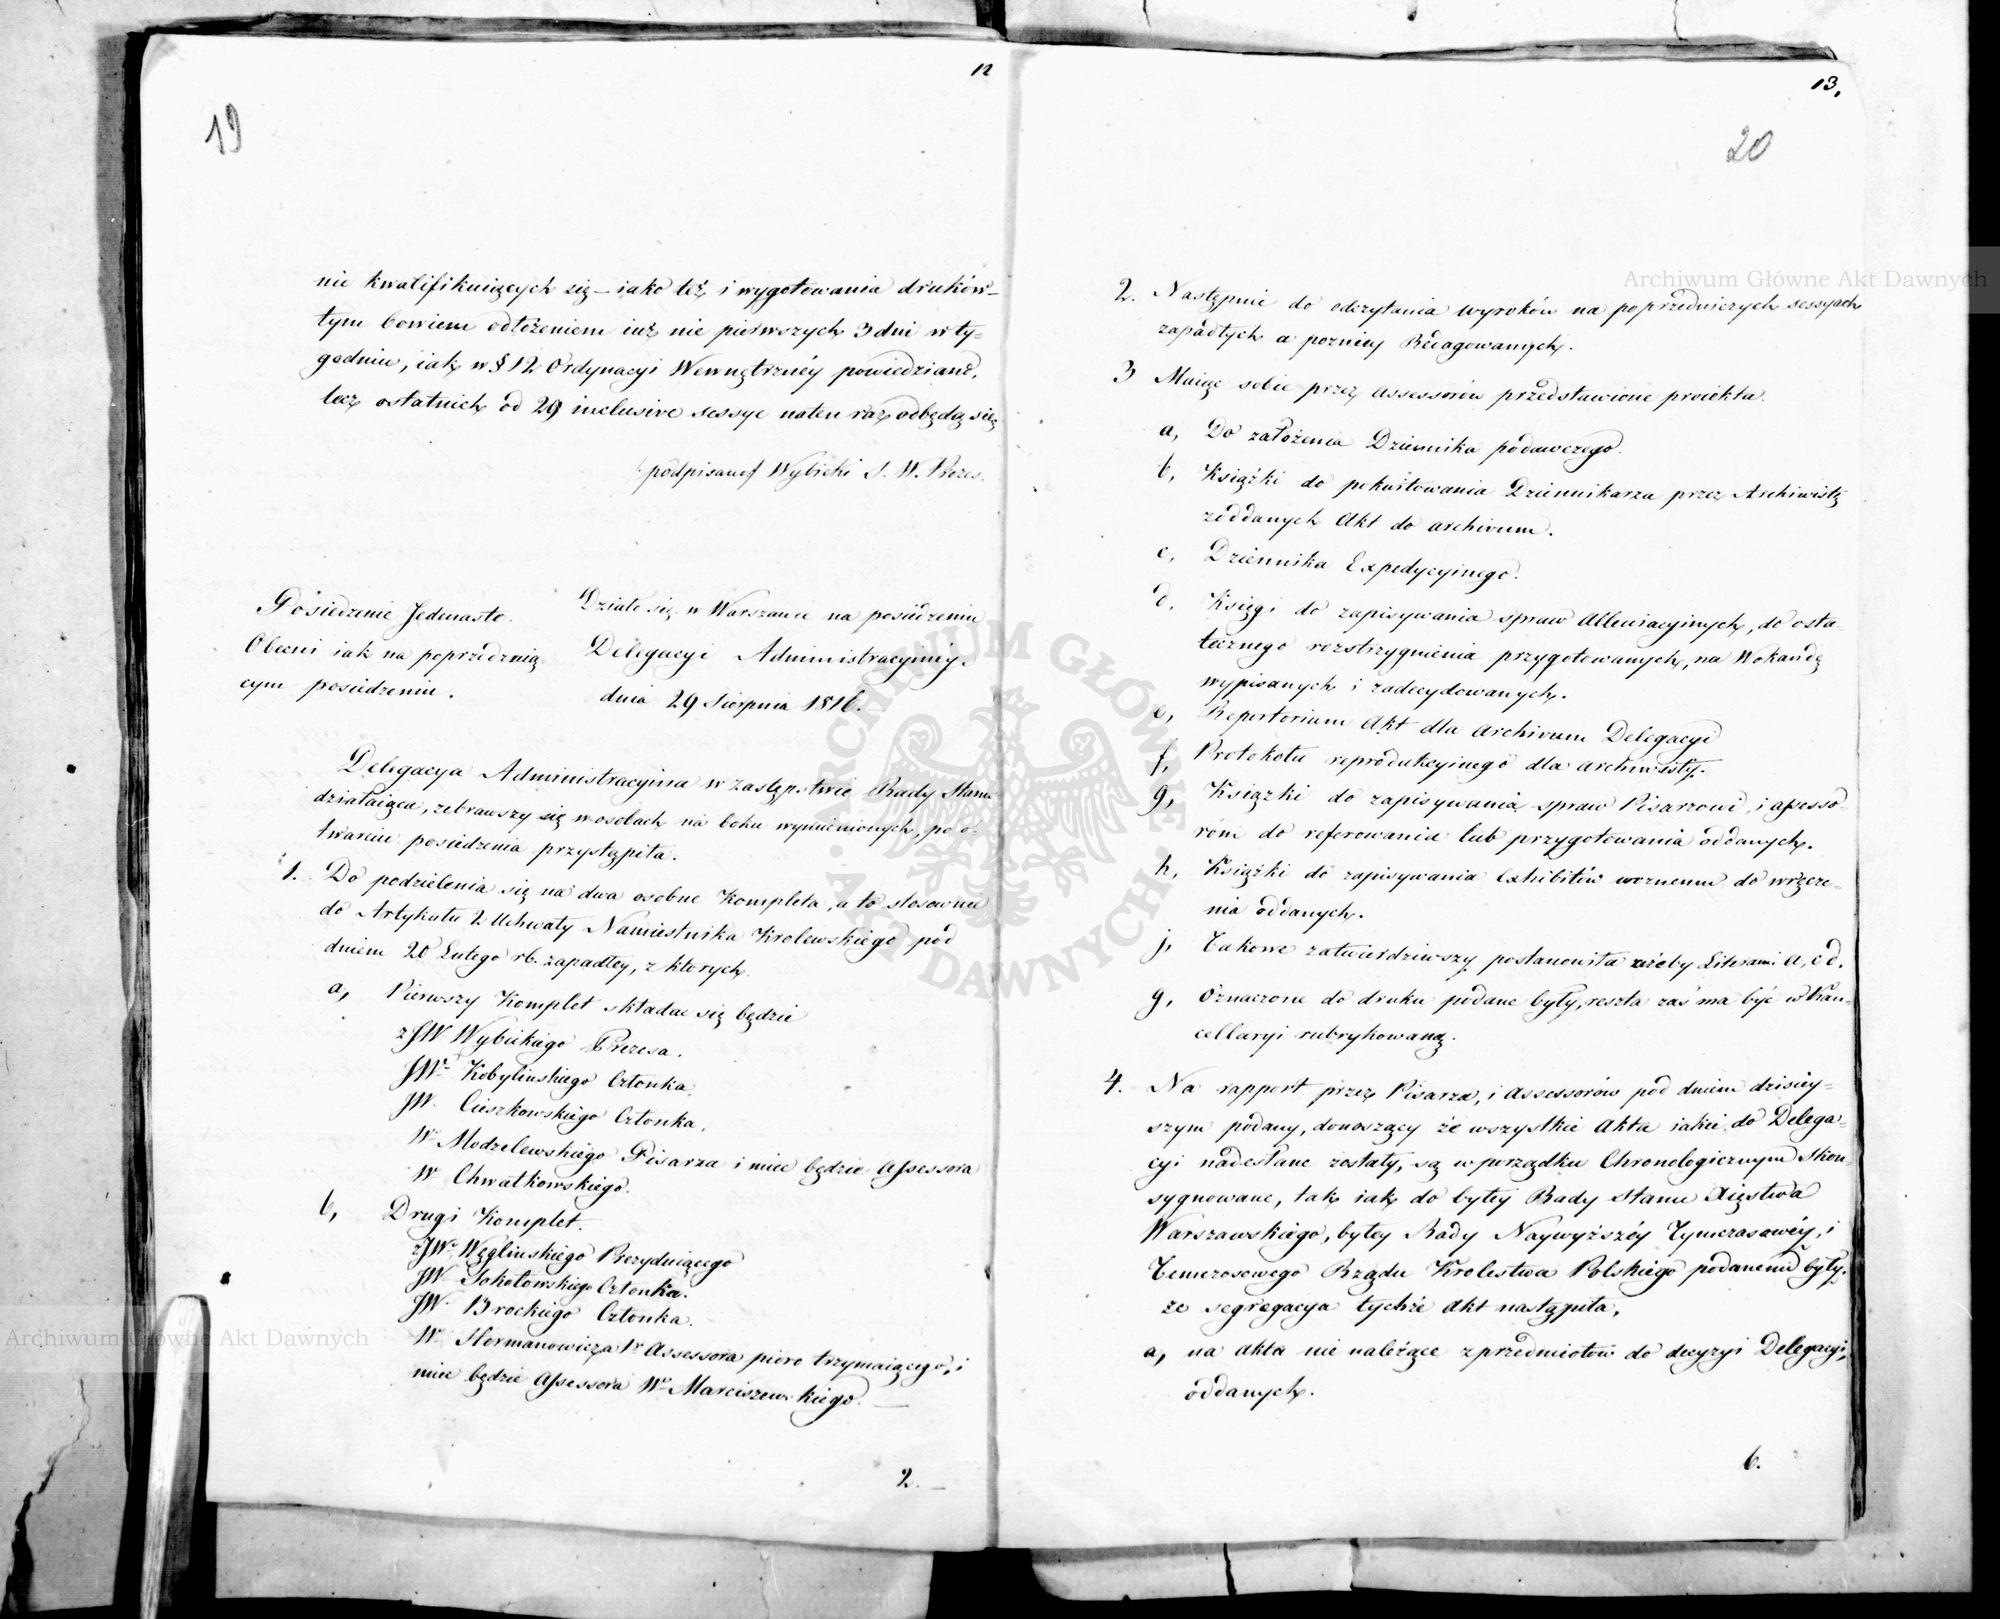 12
19
nie kwalifikuiących się – iako też i wygotowania druków –
tym bowiem odłożeniem iuż nie pierwszych 3 dni w ty-
godniu, iak w § 12 Ordynacyi Wewnętrznéy powiedziano,
lecz ostatnich od 29 inclusive sessye naten raz odbędą się
podpisano/ Wybicki S. W. Prezes.
Posiedzenie Jedenaste.
Obecni iak na poprzedzaią-
cym posiedzeniu.
Działo się w Warszawie na posiedzeniu
Delegacyi Administracyiney.
dnia 29 Sierpnia 1816.
Delegacya Administracyina w zastępstwie Rady Stanu
działaiąca, zebrawszy się w osobach na boku wymienionych, po o-
twarciu posiedzenia przystąpiła.
1. Do podzielenia się na dwa osobne Kompleta, a to stosownie
do Artykułu 2 Uchwały Namiestnika Krolewskiego pod
dniem 20 Lutego rb. zapadłey, z ktorych
a, Pierwszy Komplet składac się będzie
z JW Wybickiego Prezesa.
JW. Kobylinskiego Członka,
JW. Cieszkowskiego Członka,
W. Modzelewskiego Pisarza i miec będzie Assessora
W Chwatkowskiego.
b, Drugi Komplet.
z JW. Węglinskiego Prezyduiącego
JW. Sokołowskiego Członka.
JW. Brockiego Członka.
W. Hermanowicza 1o Assessora pioro trzymaiącego, i
miec będzie Assessora W. Marciszewskiego. —
2. —
13.
20
2. Następnie do odczytania wyroków na poprzedniczych sessyach
zapadłych a pozniey Redagowanych.
3 Maiąc sobie przez Assessorów przedstawione proiekta.
a, Do założenia Dziennika podawczego.
b, Książki do pokwitowania Dziennikarza przez Archiwistę
z oddanych Akt do archivum.
c, Dziennika Expedycyinego.
d. Księgi do zapisywania spraw Alleviacyinych, do osta-
tecznego rozstrzygnienia przygotowanych, na Wokandę
wypisanych i zadecydowanych.
e, Repertorium Akt dla Archivum Delegacyi
f, Protokołu reprodukcyinego dla archiwisty.
g, Książki do zapisywania spraw Pisarzowi, i assesso-
róm do referowania lub przygotowania oddanych.
h, Książki do zapisywania exhibitów woznemu do wręcze-
nia oddanych.
j, Takowe zatwierdziwszy postanowiła ażeby Literami a, c d.
g, oznaczone do druku podane były, reszta zaś ma być w Kan-
cellaryi rubrykowaną.
4. Na rapport przez Pisarza, i Assessorów pod dniem dzisiey-
szym podany, donoszący że wszystkie Akta iakie do Delega-
cyi nadesłane zostały, są w porządku Chronologicznym skon-
sygnowane, tak iak do byłey Rady Stanu Xięstwa
Warszawskiego, byłey Rady Naywyższéy Tymczasowéy, i
Temczosowego Rządu Krolestwa Polskiego podanemi były.
ze segregacya tychże Akt nastąpiła,
a, na Akta nie należące z przedmiotów do decyzyi Delegacyi,
oddanych.
b.
Archiwum Główne Akt Dawnych
Archiwum Główne Akt Dawnych
ARCHIWUM GŁÓWNE AKT DAWNYCH